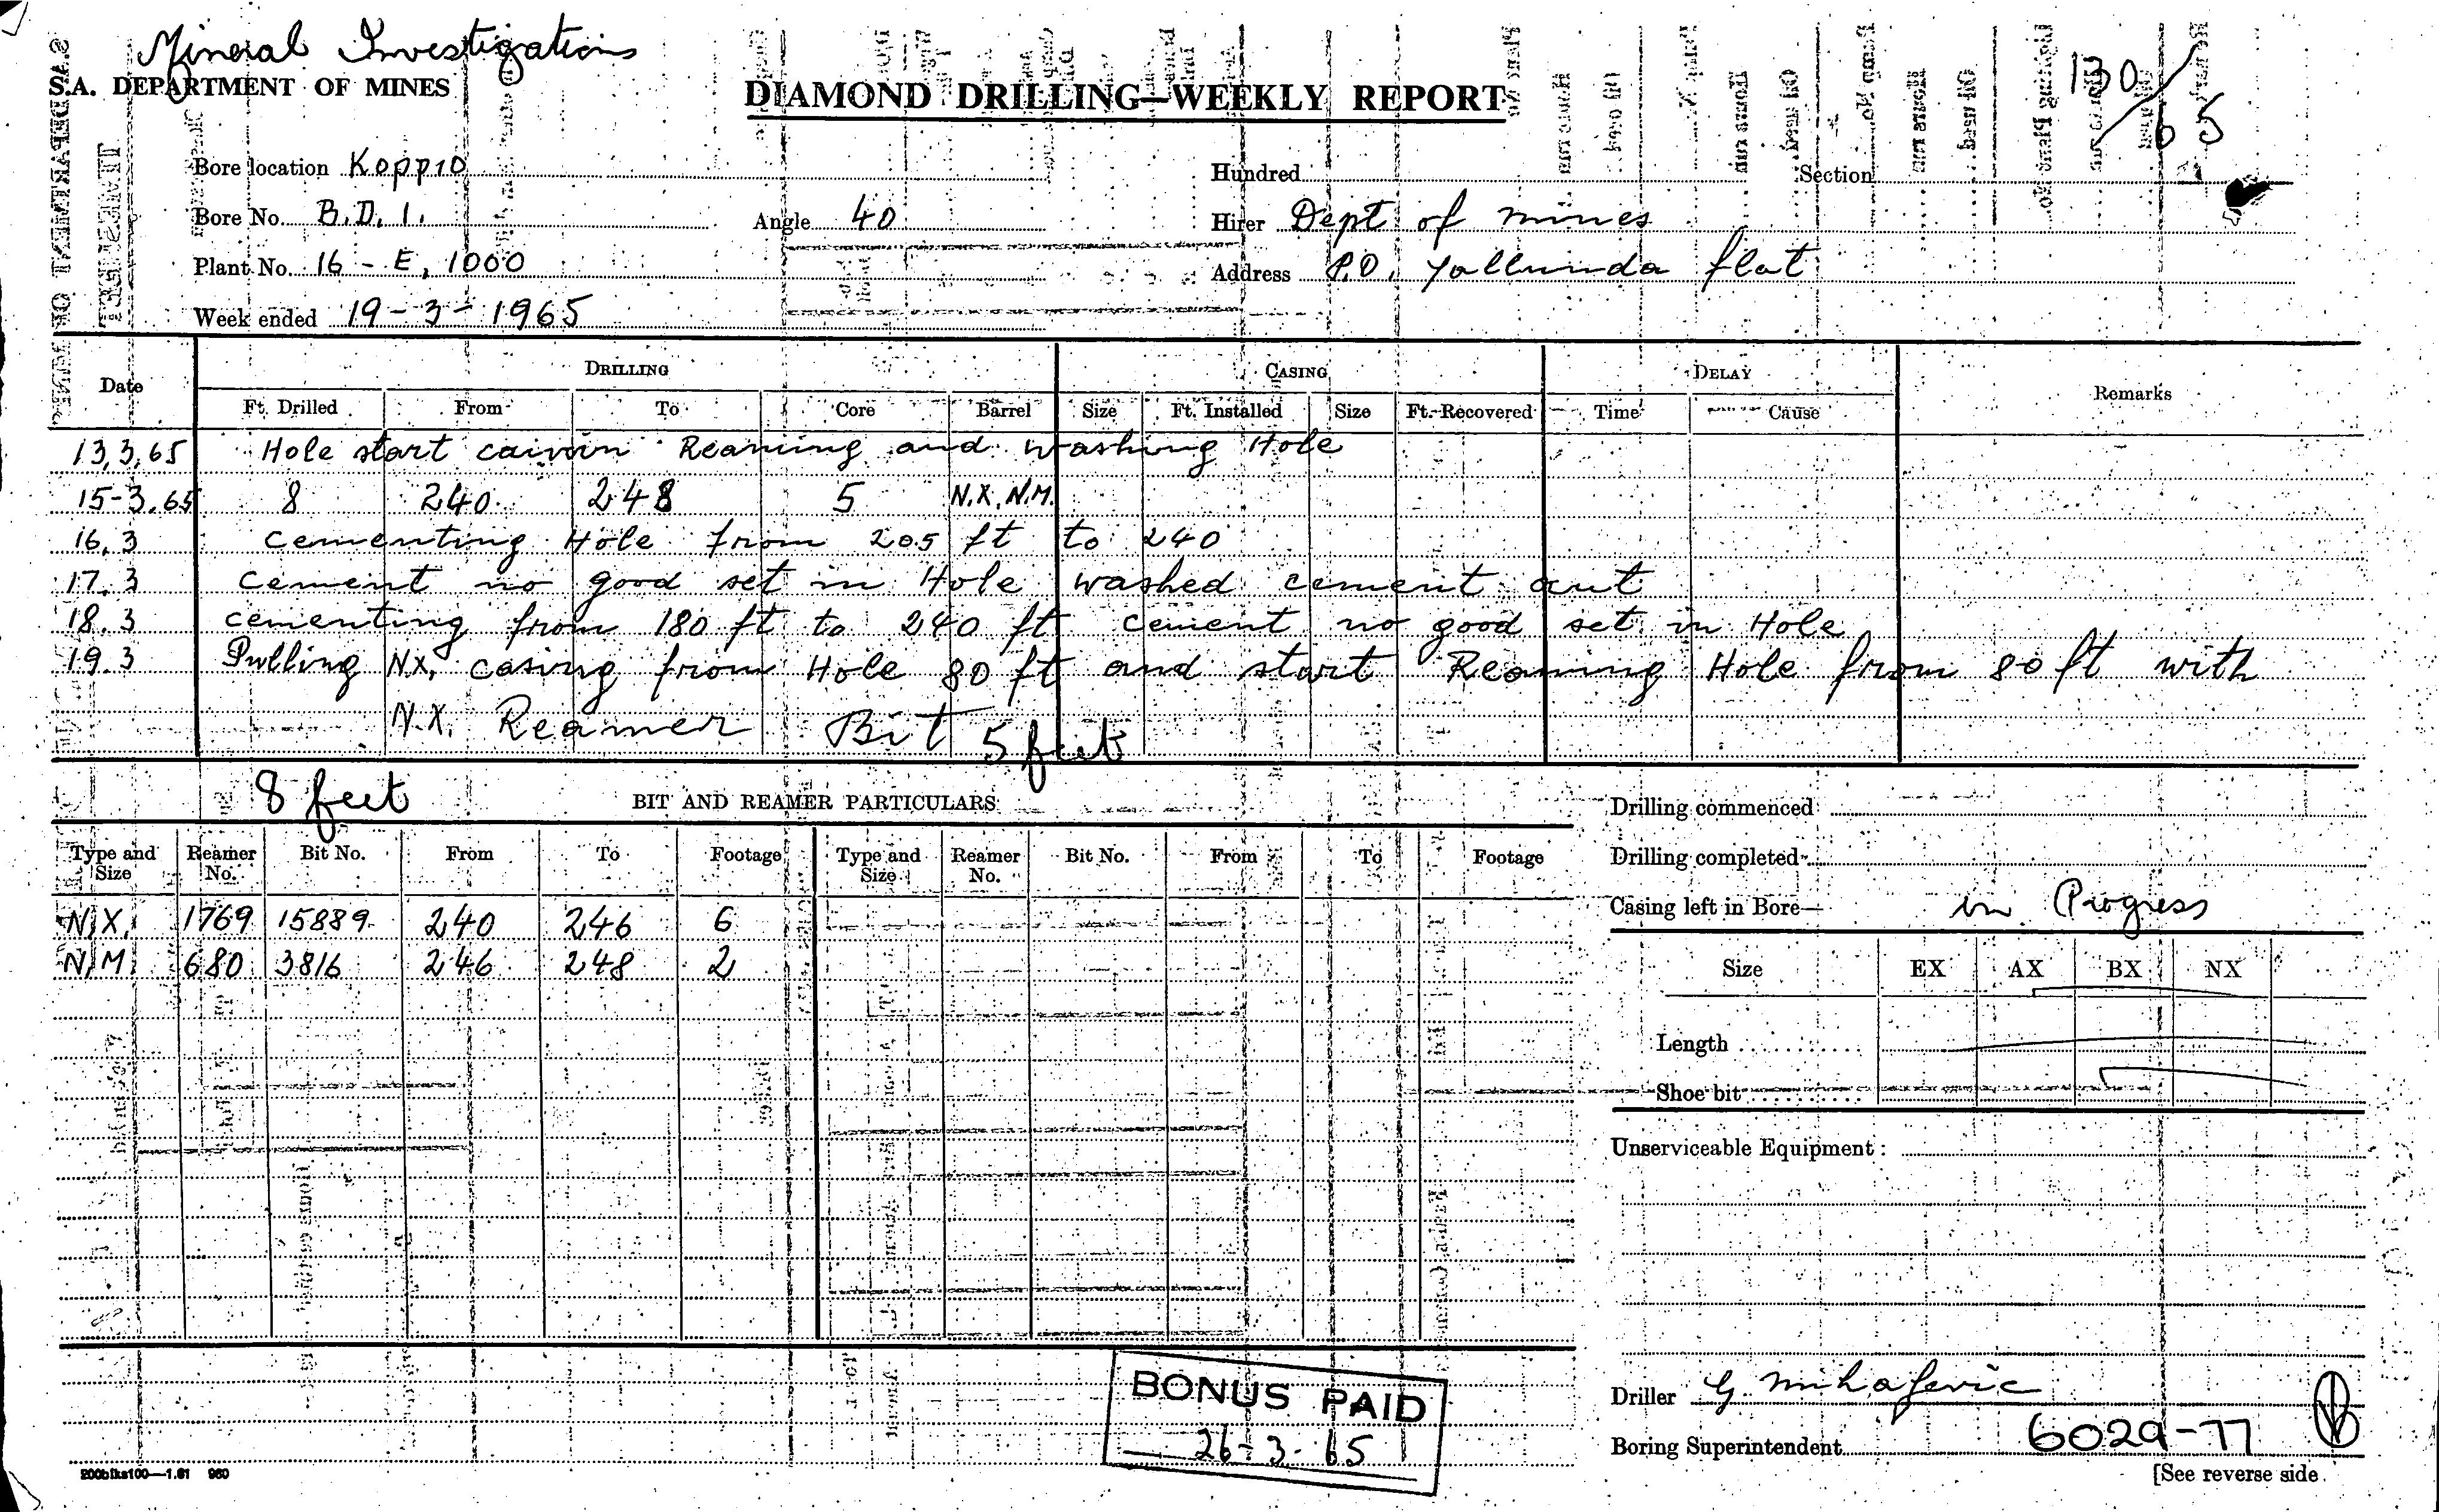 Mineral Investigations
S.A. DEPARTMENT OF MINES
DIAMOND DRILLING—WEEKLY REPORT
130/65
Bore location Koppio
Hundred Section
Bore No. B.D. 1. Angle 40
Hirer Dept of mines
Plant No. 16 - E, 1000
Address P.O. Yallunda flat
Week ended 19-3-1965
Date DRILLING CASING DELAY Remarks
Ft. Drilled From To Core Barrel Size Ft. Installed Size Ft. Recovered Time Cause
13,3,65 Hole start caivin Reaming and washing Hole
15-3.65 8 240 248 5 N.X, N.M.
16.3 cementing Hole from 205 ft to 240
17.3 cement no good set in Hole washed cement out
18.3 cementing from 180 ft to 240 ft cement no good set in Hole
19.3 Pulling N.X. casing from Hole 80 ft and start Reaming Hole from 80 ft with
N.X. Reamer Bit 5 feet
8 feet
BIT AND REAMER PARTICULARS
Type and Size Reamer No. Bit No. From To Footage Type and Size Reamer No. Bit No. From To Footage
N.X. 1769 15889 240 246 6
N.M. 680 3816 246 248 2
Drilling commenced
Drilling completed
Casing left in Bore— in Progress
Size EX AX BX NX
Length
Shoe bit
Unserviceable Equipment :
BONUS PAID
26-3-65
Driller G Mihafevic
Boring Superintendent
6029-77
200blks100—1.61 960
[See reverse side